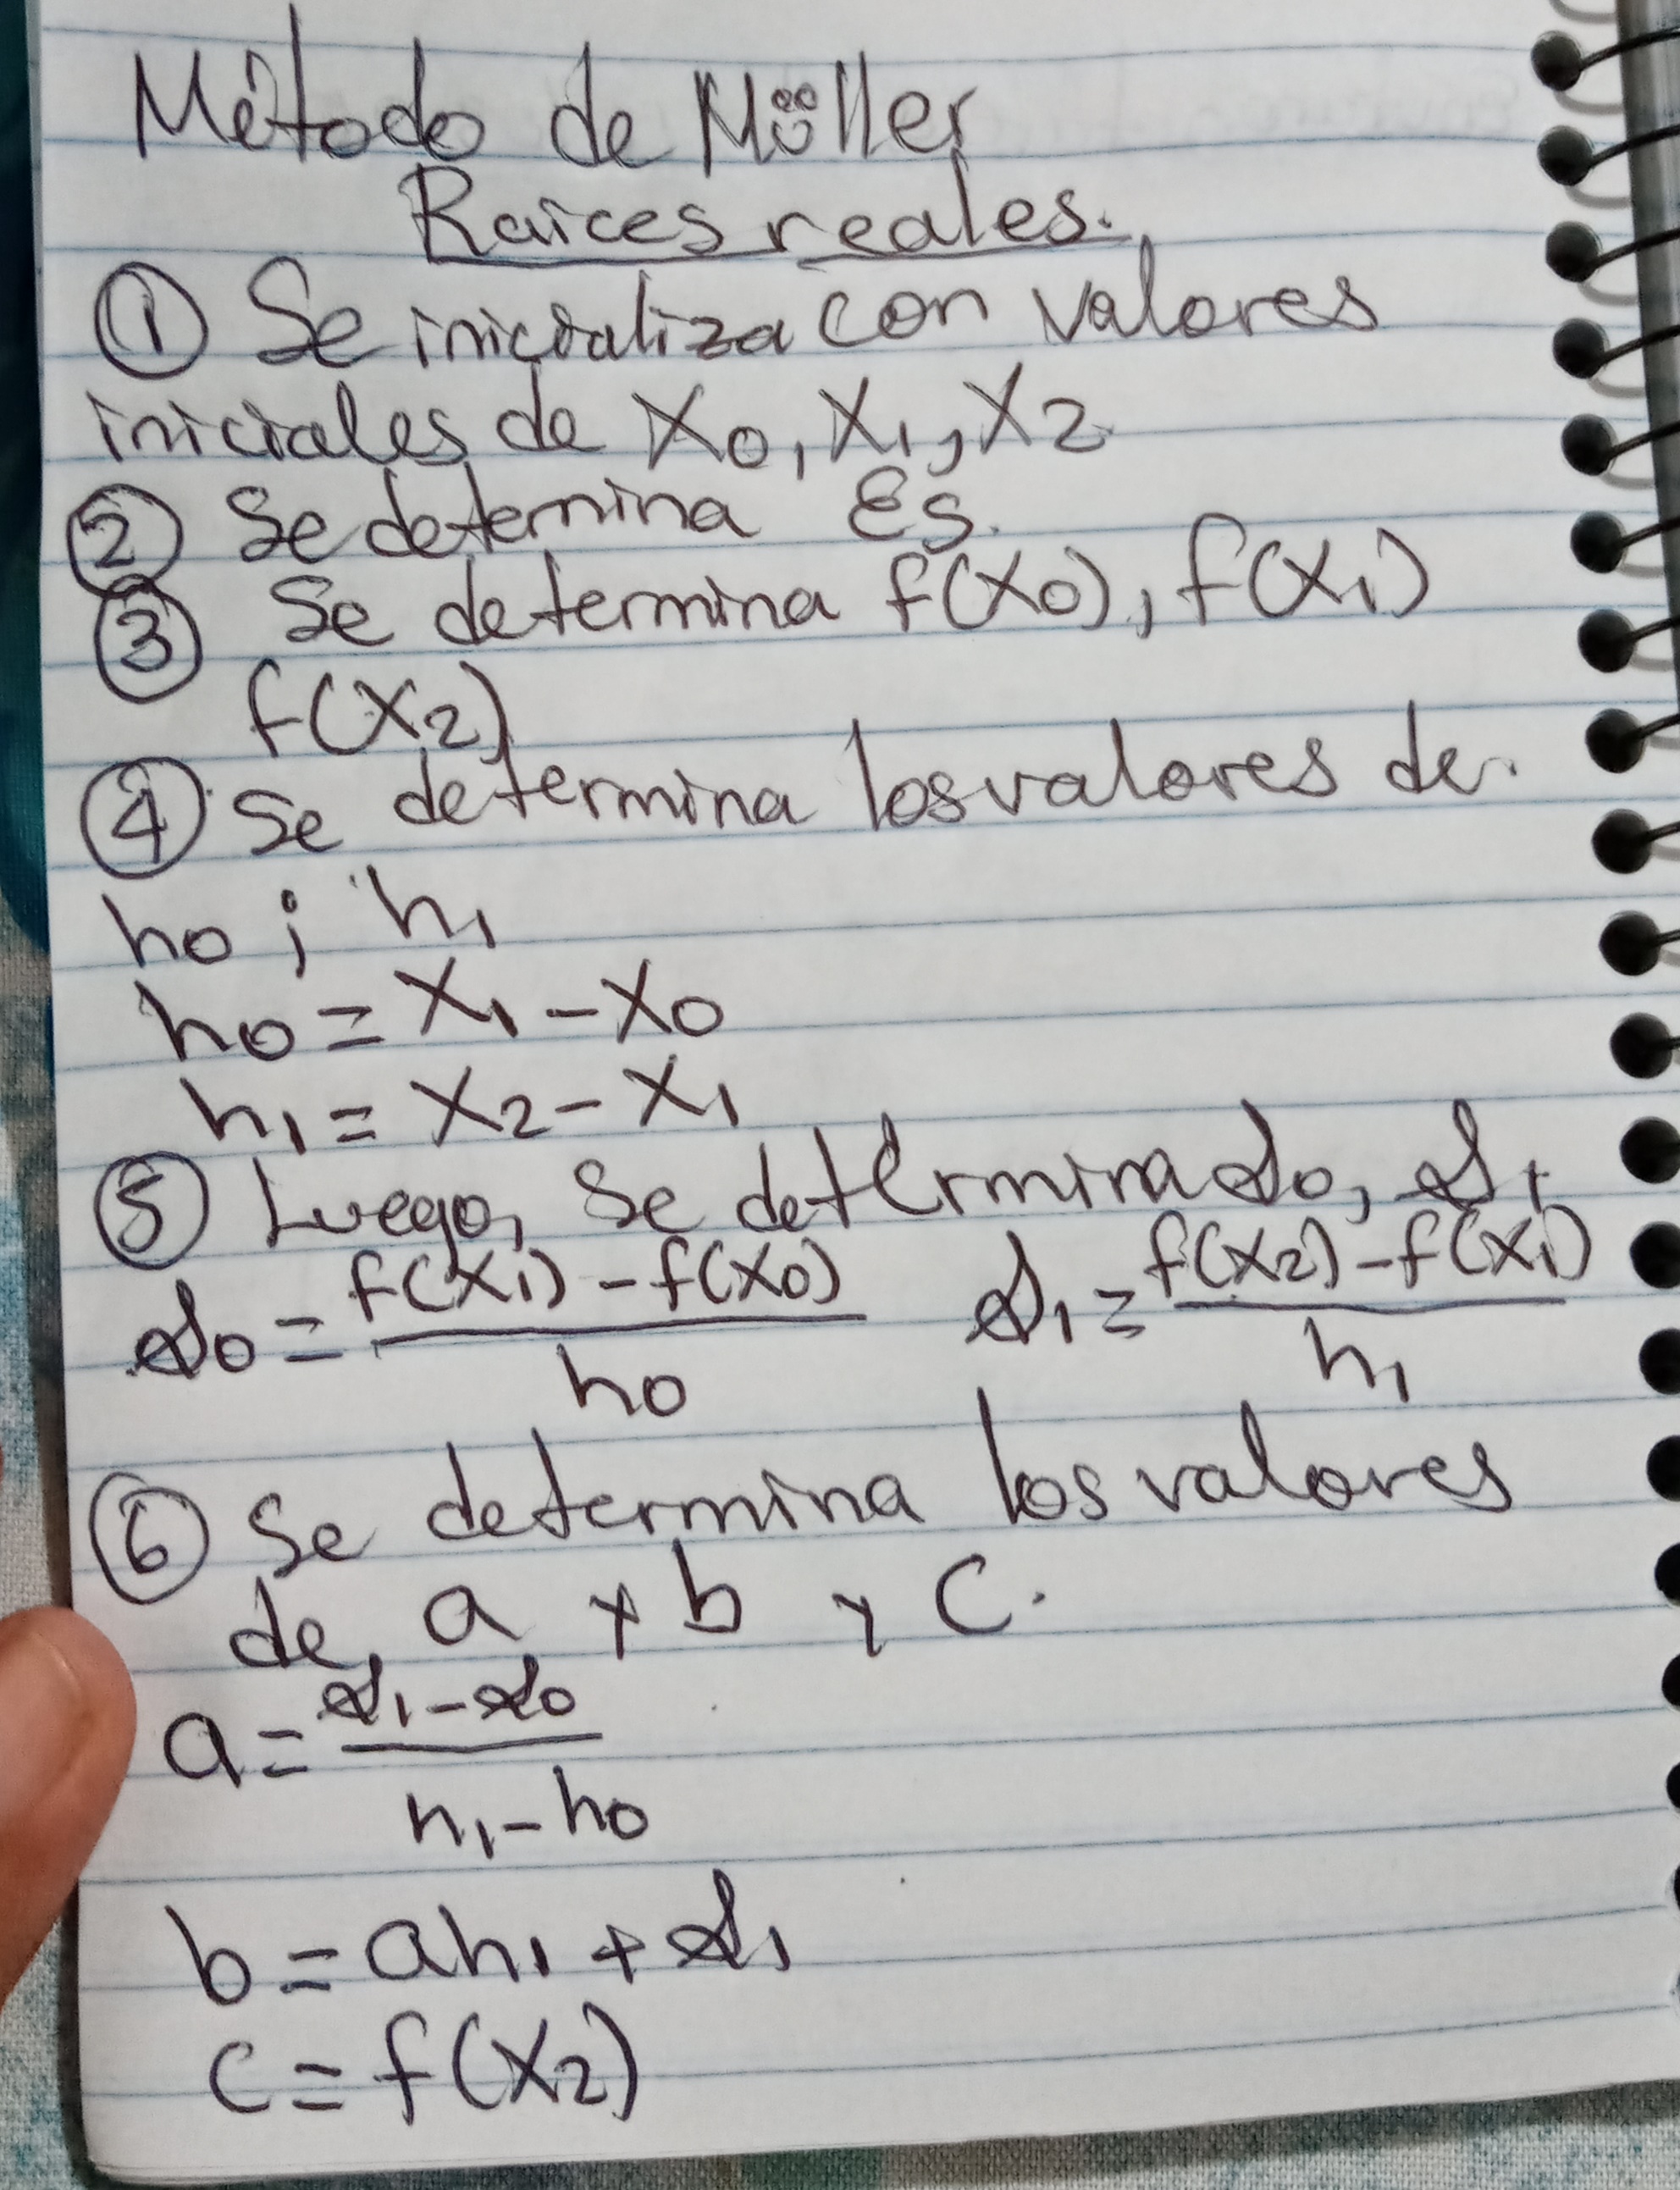 Método de Müller
Raíces reales.
① Se inicializa con valores
iniciales de X0, X1, X2
② Se determina Es.
③ Se determina f(X0), f(X1)
f(X2)
④ Se determina los valores de
h0 ; h1
h0 = X1 - X0
h1 = X2 - X1
⑤ Luego, se determinado, δ1
δ0 = f(X1) - f(X0) / h0 δ1 = f(X2) - f(X1) / h1
⑥ Se determina los valores
de a y b y c.
a = δ1 - δ0 / h1 - h0
b = ah1 + δ1
c = f(X2)